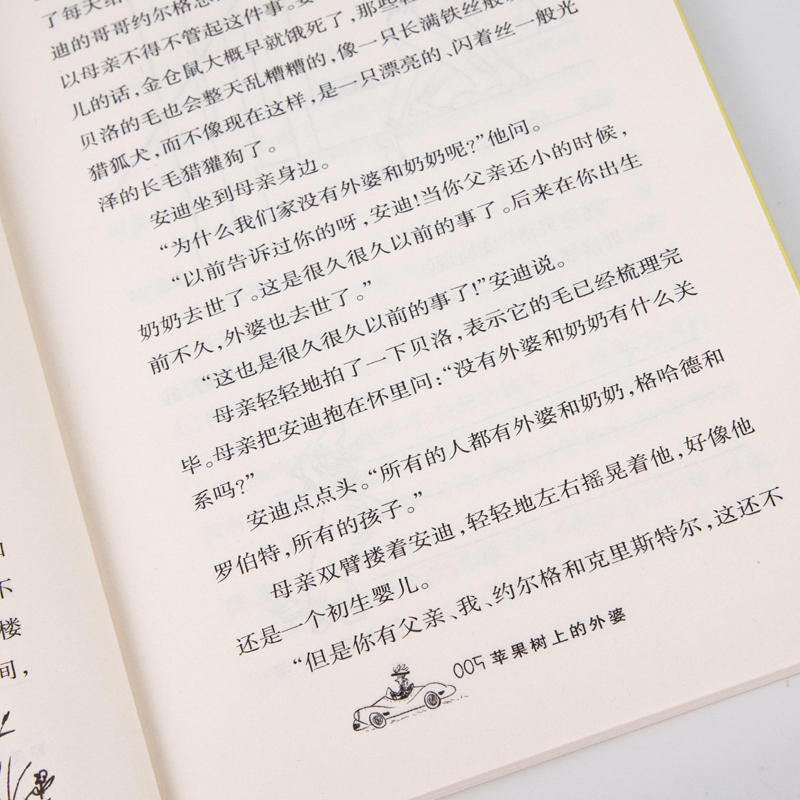 了每天给
迪的哥哥约尔格
以母亲不得不管起这件事。
儿的话，金仓鼠大概早就饿死了，那些
贝洛的毛也会整天乱糟糟的，像一只长满铁丝般
猎狐犬，而不像现在这样，是一只漂亮的、闪着丝一般光
泽的长毛猎獾狗了。
安迪坐到母亲身边。
“为什么我们家没有外婆和奶奶呢？”他问。
“以前告诉过你的呀，安迪！当你父亲还小的时候，
奶奶去世了。这是很久很久以前的事了。后来在你出生
前不久，外婆也去世了。”
“这也是很久很久以前的事了！”安迪说。
母亲轻轻地拍了一下贝洛，表示它的毛已经梳理完
毕。母亲把安迪抱在怀里问：“没有外婆和奶奶有什么关
系吗？”
安迪点点头。“所有的人都有外婆和奶奶，格哈德和
罗伯特，所有的孩子。”
母亲双臂搂着安迪，轻轻地左右摇晃着他，好像他
还是一个初生婴儿。
“但是你有父亲、我、约尔格和克里斯特尔，这还不
005 苹果树上的外婆
不
楼
间，